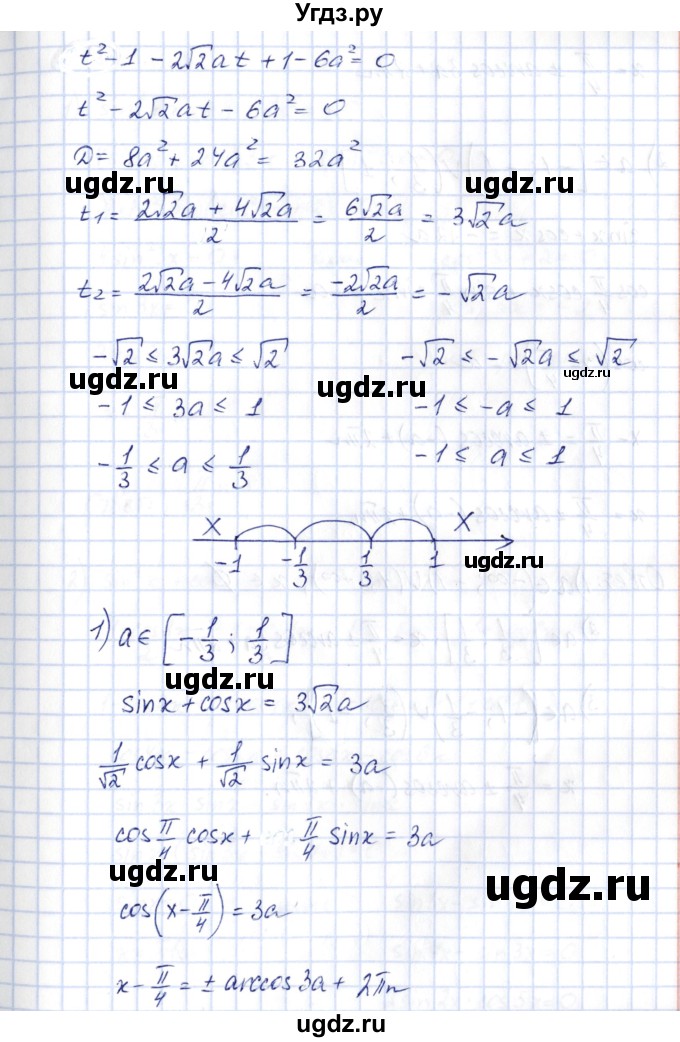 Угдз.ру
t² - 1 - 2√2at + 1 - 6a² = 0
t² - 2√2at - 6a² = 0
D = 8a² + 24a² = 32a²
ugdz.ru ugdz.ru
t₁ = (2√2a + 4√2a)/2 = 6√2a/2 = 3√2a
t₂ = (2√2a - 4√2a)/2 = -2√2a/2 = -√2a
-√2 ≤ 3√2a ≤ √2 -√2 ≤ -√2a ≤ √2
ugdz.ru ugdz.ru ugdz.ru
-1 ≤ 3a ≤ 1 -1 ≤ -a ≤ 1
-1/3 ≤ a ≤ 1/3 -1 ≤ a ≤ 1
X X
-1 -1/3 1/3 1 ugdz.ru
1) a∈[-1/3; 1/3]
ugdz.ru
sinx + cosx = 3√2a
1/√2 cosx + 1/√2 sinx = 3a
cos π/4 cosx + π/4 sinx = 3a
ugdz.ru ugdz.ru
cos(x - π/4) = 3a
x - π/4 = ± arccos3a + 2πn
ugdz.ru